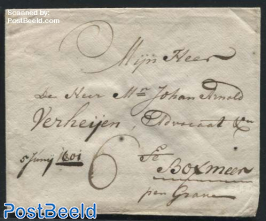 Mijn Heer
De Heer Mr Johan Arnold
Verheijen, Advocaat &n
5 Junij 1801
6
Te
Boxmeer
per Grave
PostBeeld
PostBeeld